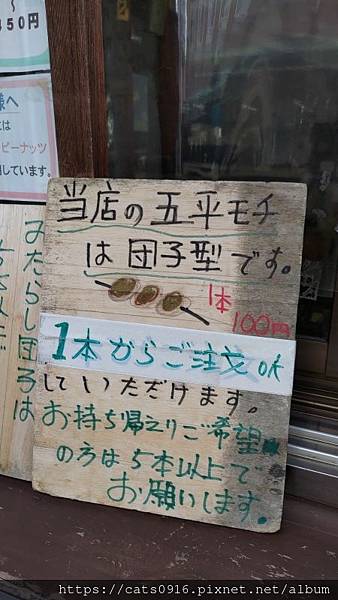 ～
450円
様へ
には
ピーナッツ
用しています。
当店の五平モチ
は団子型です。
1本
100円
1本からご注文OK
していただけます。
お持ち帰りご希望
の方は5本以上で
お願いします。
みたらし団子は
https://cats0916.pixnet.net/album